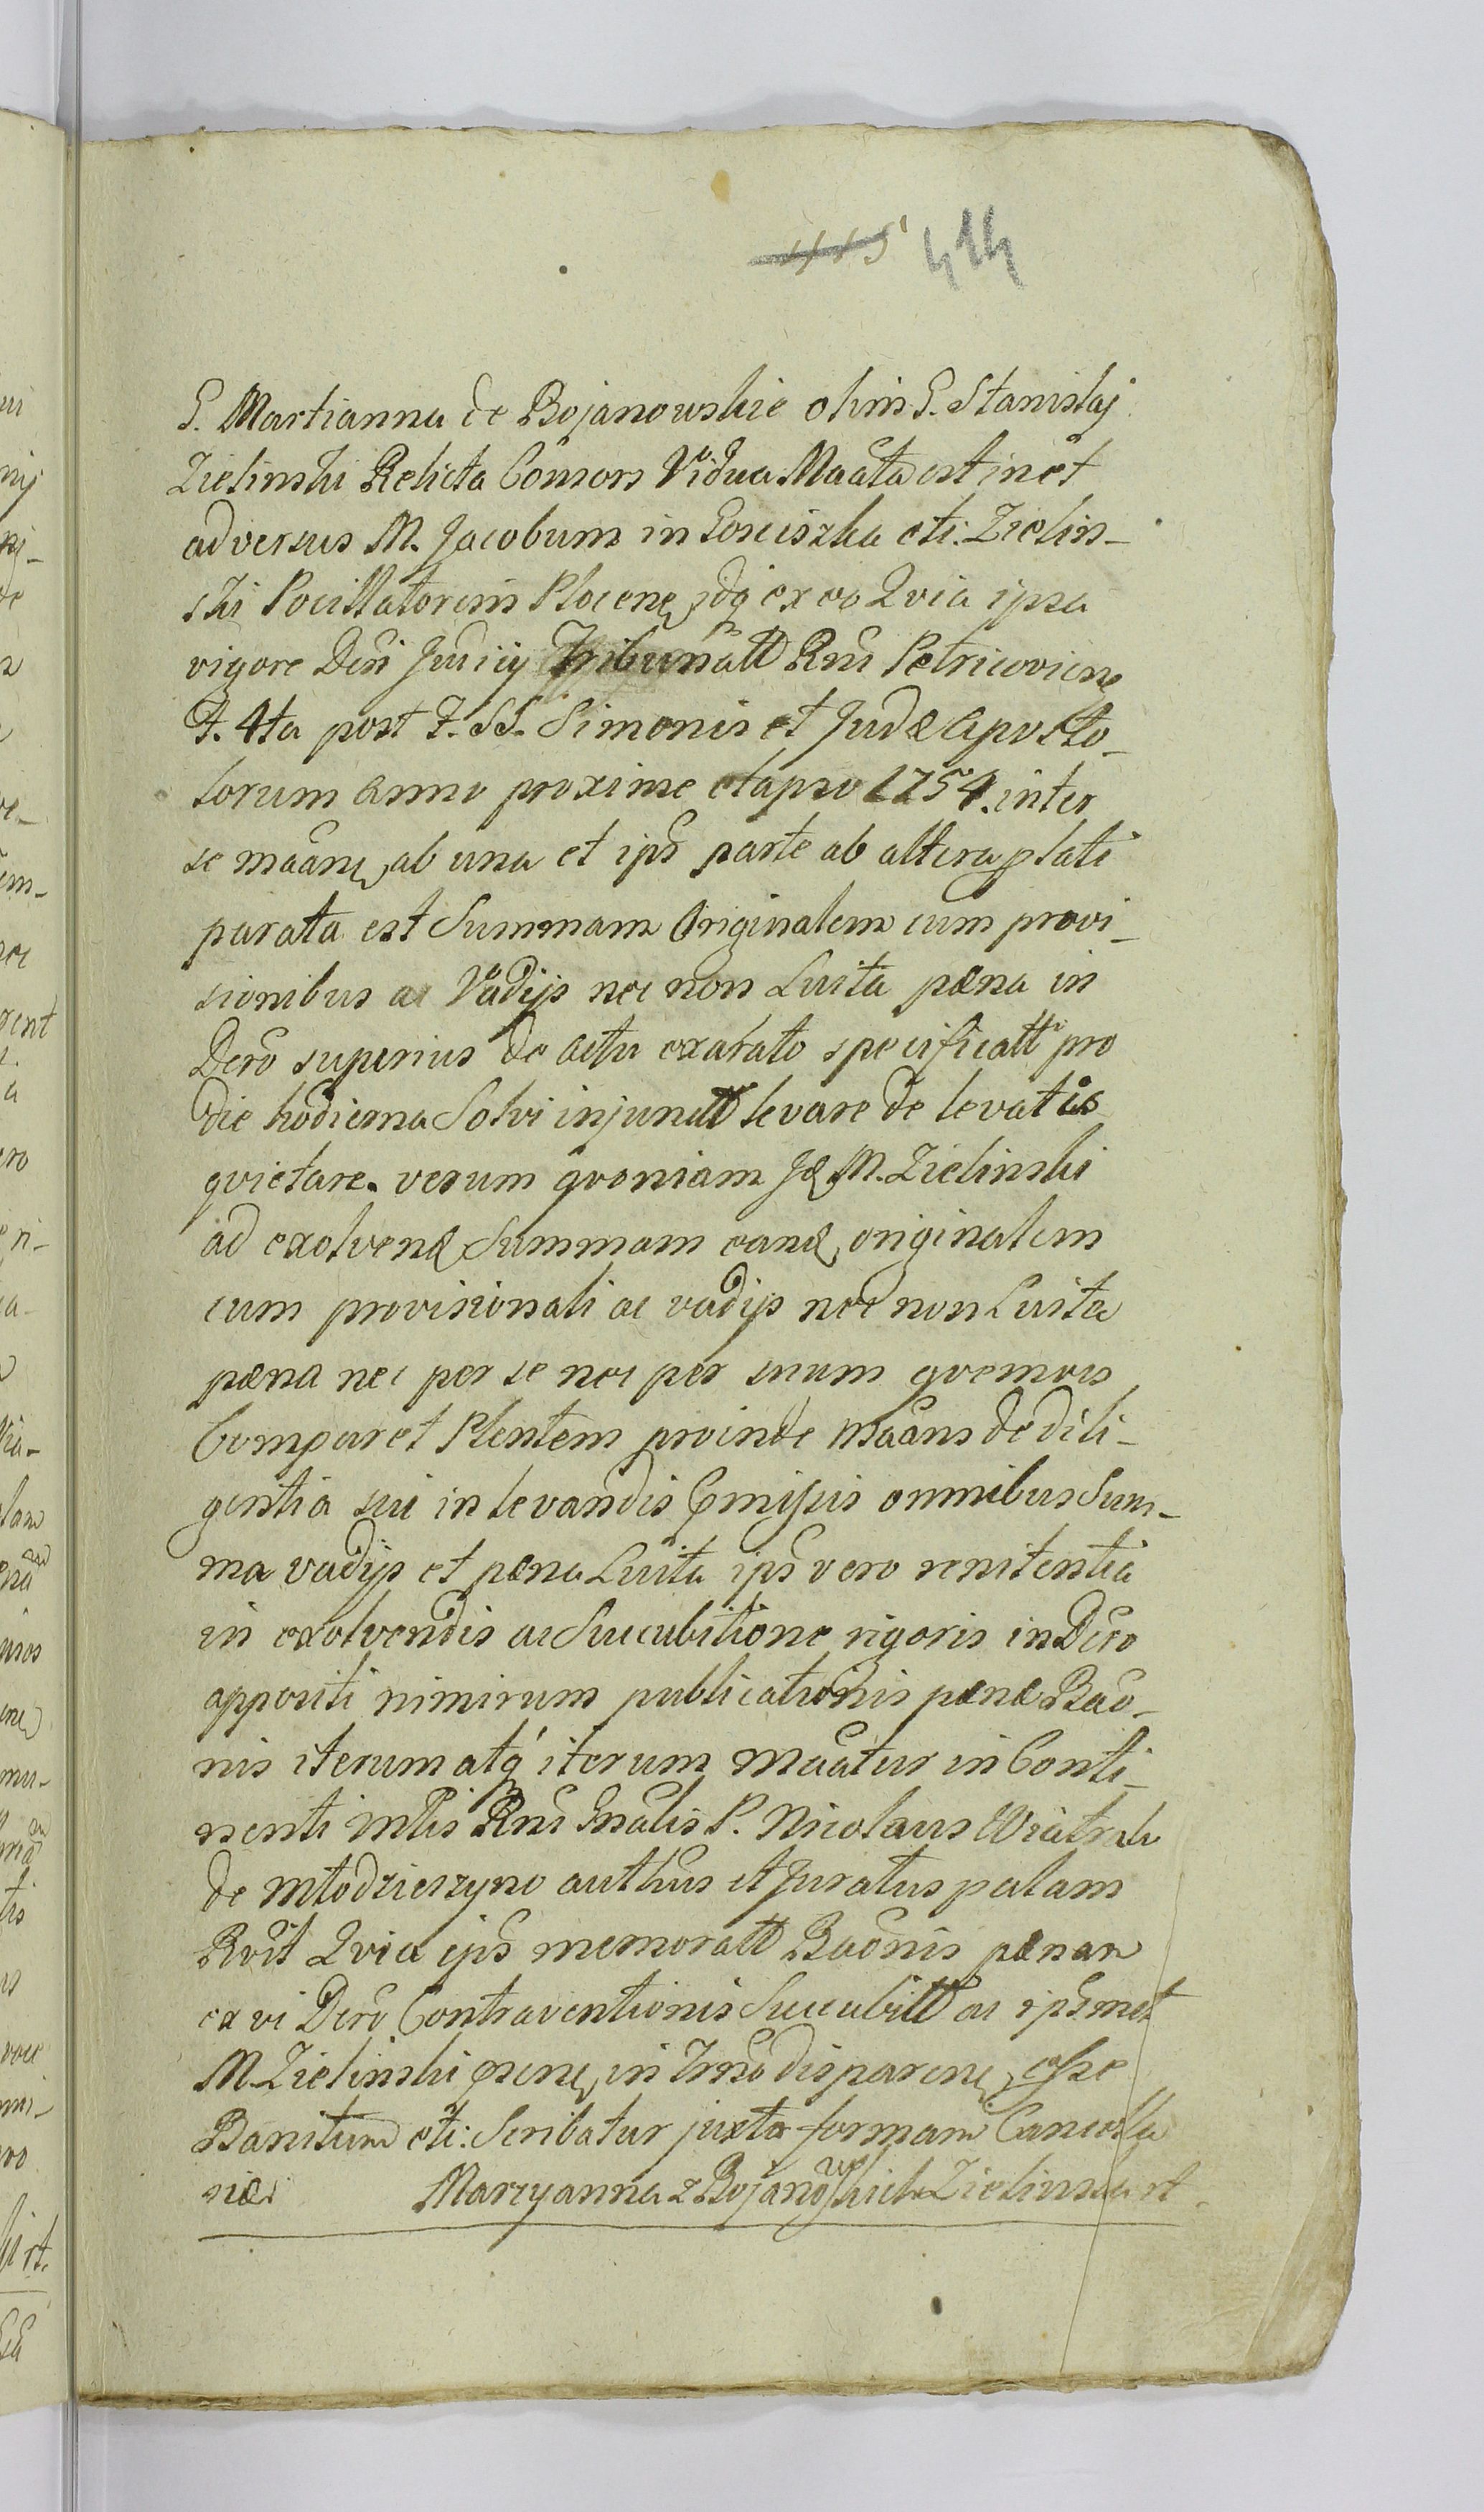 415 414
G. Martianna de Bojanowskie olim G. Stanislaj
Zielinski Relicta Consors Vidua Maata est inet
adversus M. Jacobum in Gosciszka etc: Zielin-
ski Pocillatorem Plocenẹ idq ex eo Qvia ipsa
vigore Dcri Judicij Tribunall Rni Petricovienẹ
F. 4ta post F. SS. Simonis et Judæ Aposto-
lorum Anno proxime elapso 1754. inter
se maanẹ ab una et ips parte ab altera plati
parata est Summam Originalem cum provi-
sionibus ac Vadijs nec non Luita pæna in
Dcro superius de actu exarato specificatt pro
die hodierna Solvi injunctt levare de levatis
qvietare. verum qvoniam M. Zielinski
ad exolvend Summam eand originalem
cum provisionali ac vadijs nec non Luita
pæna nec per se nec per suum qvemvis
Comparet Plentem proinde Maans de dili-
gentia sui in levandis pmissis omnibus Sum-
ma vadijs et pæna Luita ips vero renitentia
in exolvendis ac Succubitione rigoris in Dcro
appositi nimirum publicationis pænæ Bao-
nis iterum atq iterum maatur in Conti-
nenti Mlis Rni Gnalis P. Nicolaus Wiatrak
de Mlodzieszyno authus et Juratus palam
Rvit Qvia ips memoratt Baonis pænam
ex vi Dcro Contraventionis Succubitt ac ipsmet
M. Zielinski psenẹ in Trno disparenẹ esse
Banitum etc: Scribatur juxta formam Cancella
riæ. Maryanna z Bojanowskich Zielinska rt.